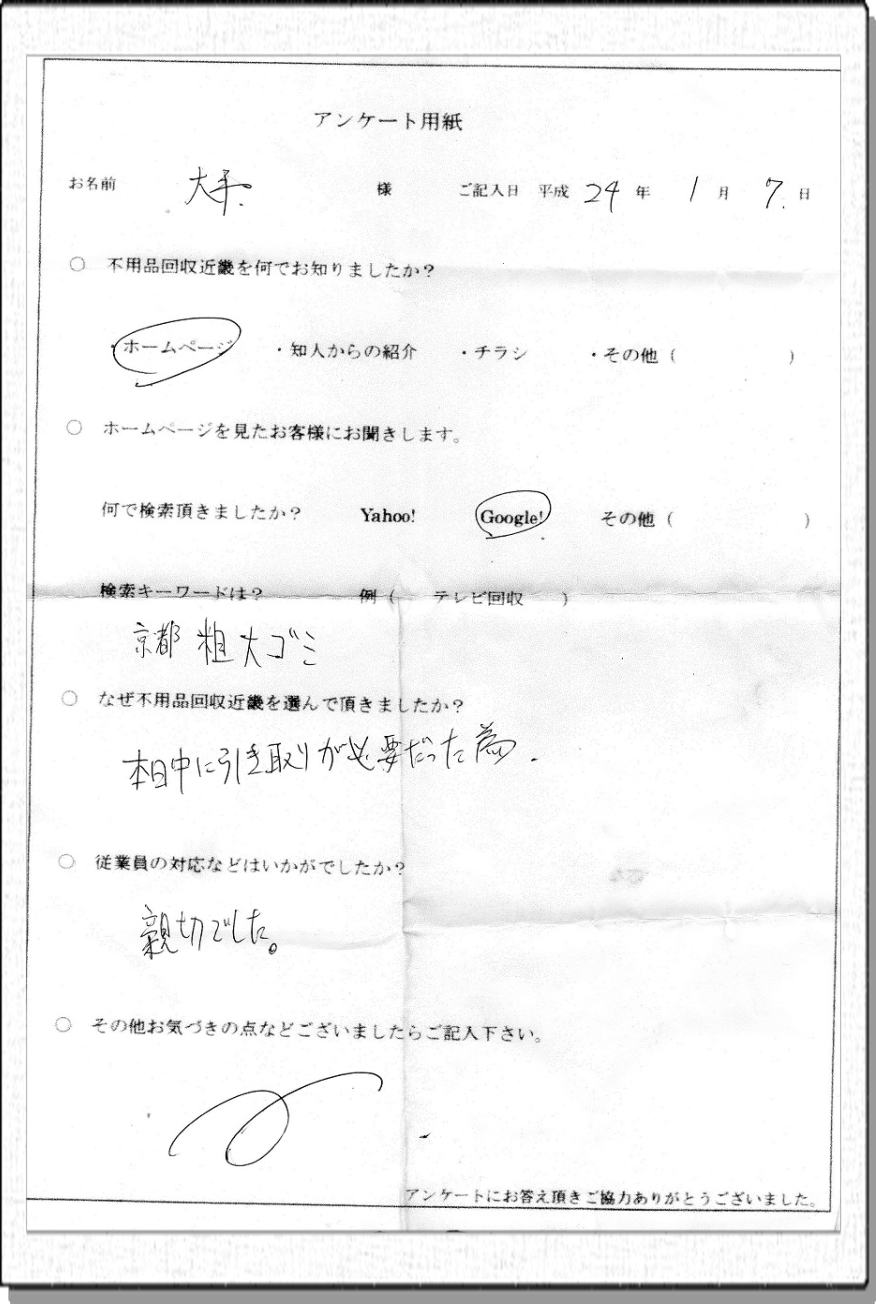 アンケート用紙
お名前 大平 様 ご記入日 平成 24 年 1 月 7 日
○ 不用品回収近畿を何でお知りましたか？
・ホームページ ・知人からの紹介 ・チラシ ・その他（ ）
○ ホームページを見たお客様にお聞きします。
何で検索頂きましたか？ Yahoo! Google! その他（ ）
検索キーワードは？ 例（ テレビ回収 ）
京都 粗大ゴミ
○ なぜ不用品回収近畿を選んで頂きましたか？
本日中に引き取りが必要だった為.
○ 従業員の対応などはいかがでしたか？
親切でした。
○ その他お気づきの点などございましたらご記入下さい。
アンケートにお答え頂きご協力ありがとうございました。